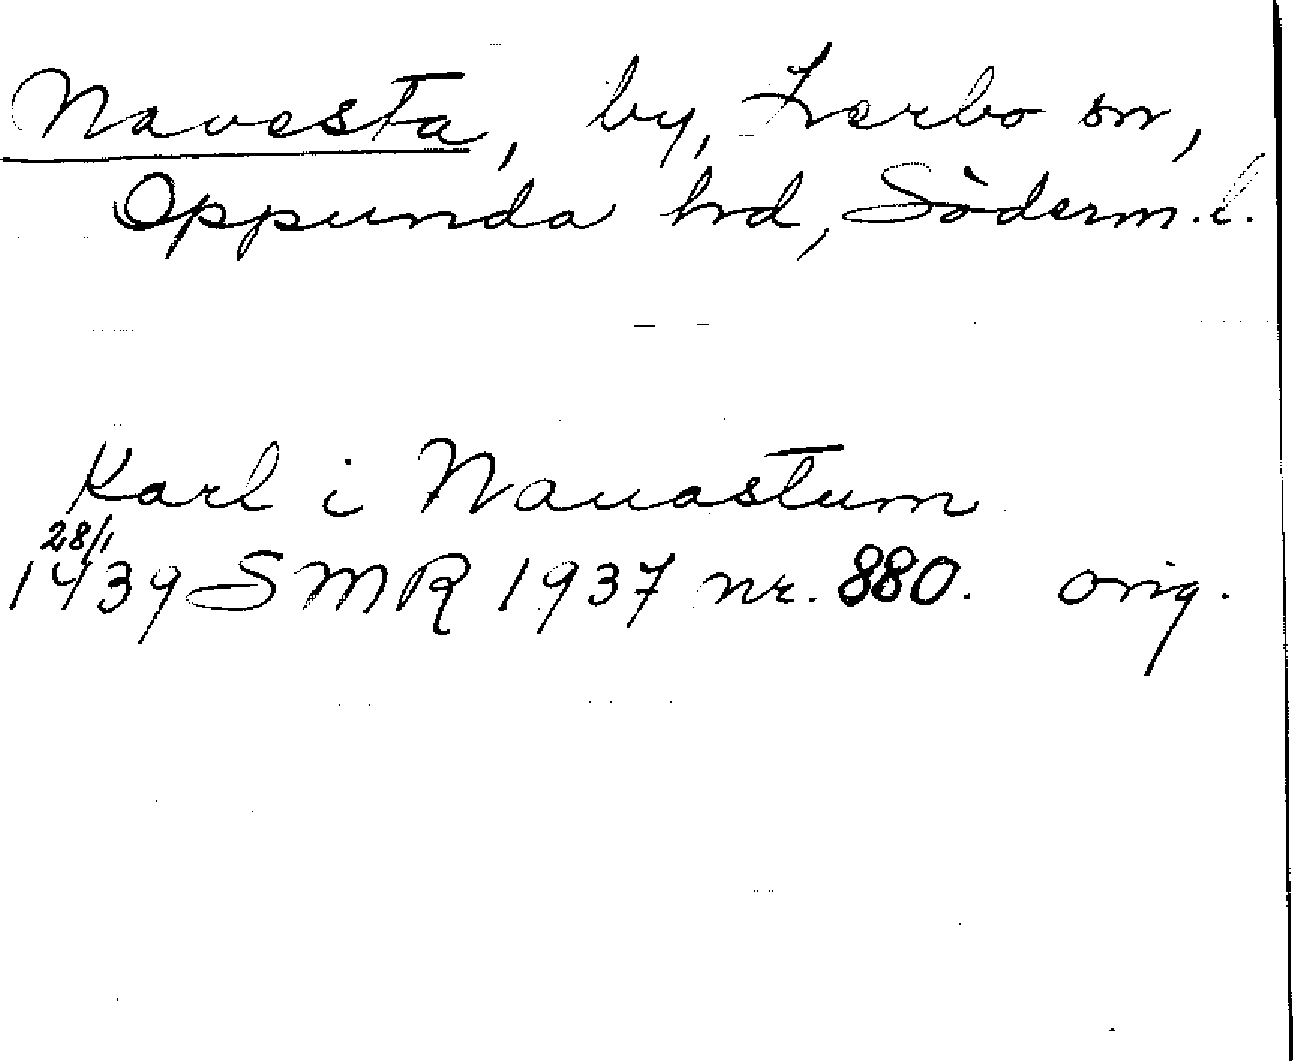 Navesta, by, Lerbo sn,
Oppunda hd, Söderm.l.
Karl i Nauastum
28/1
1439 SMR 1937 nr. 880. orig.